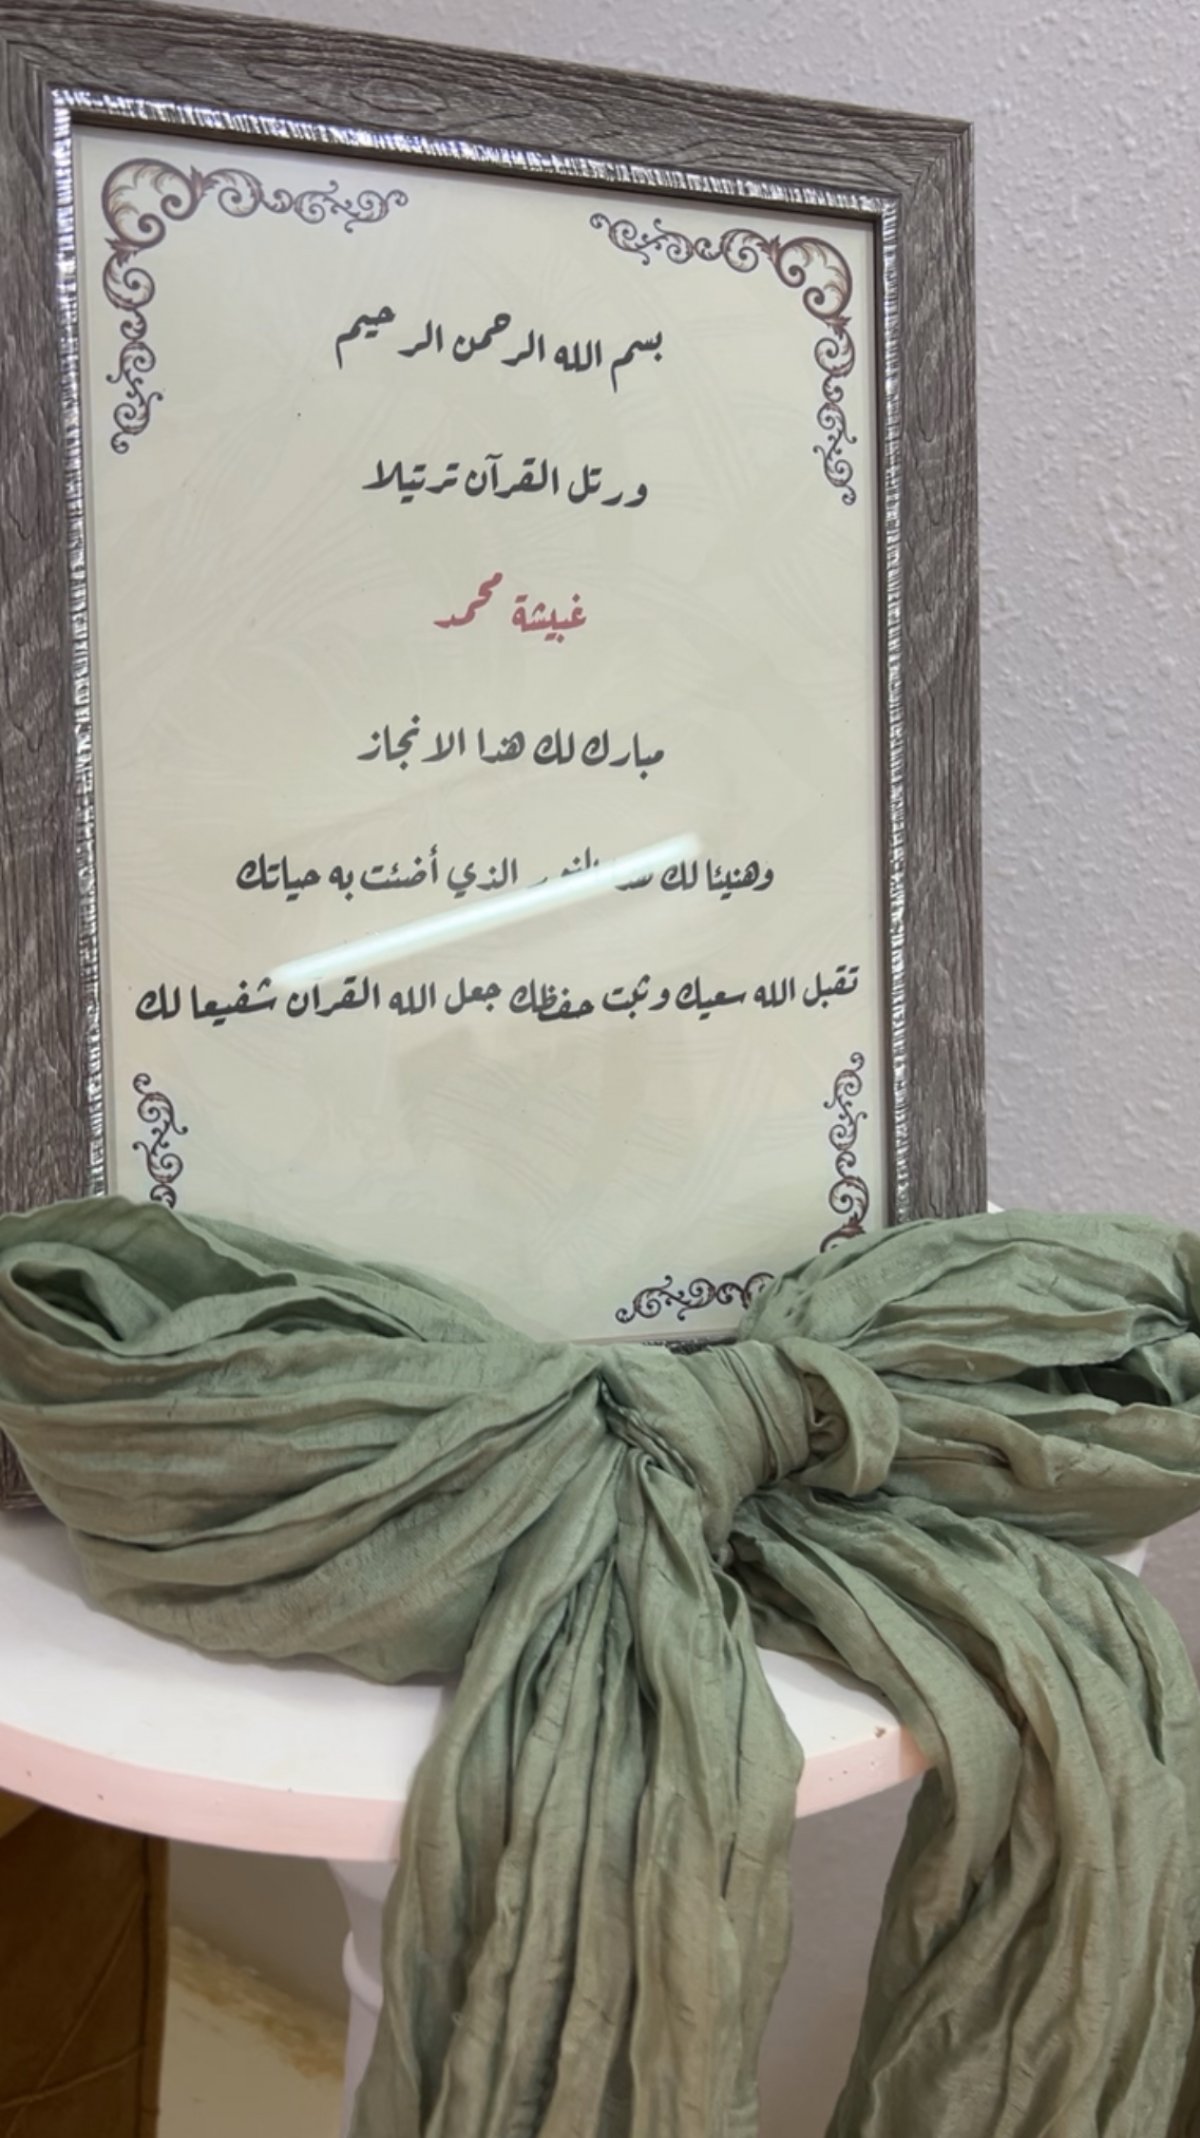 بسم الله الرحمن الرحيم
ورتل القرآن ترتيلا
غبيشة محمد
مبارك لك هدا الانجاز
وهنيئا لك النور الذي أضئت به حياتك
تقبل الله سعيك وثبت حفظك جعل الله القرآن شفيعا لك